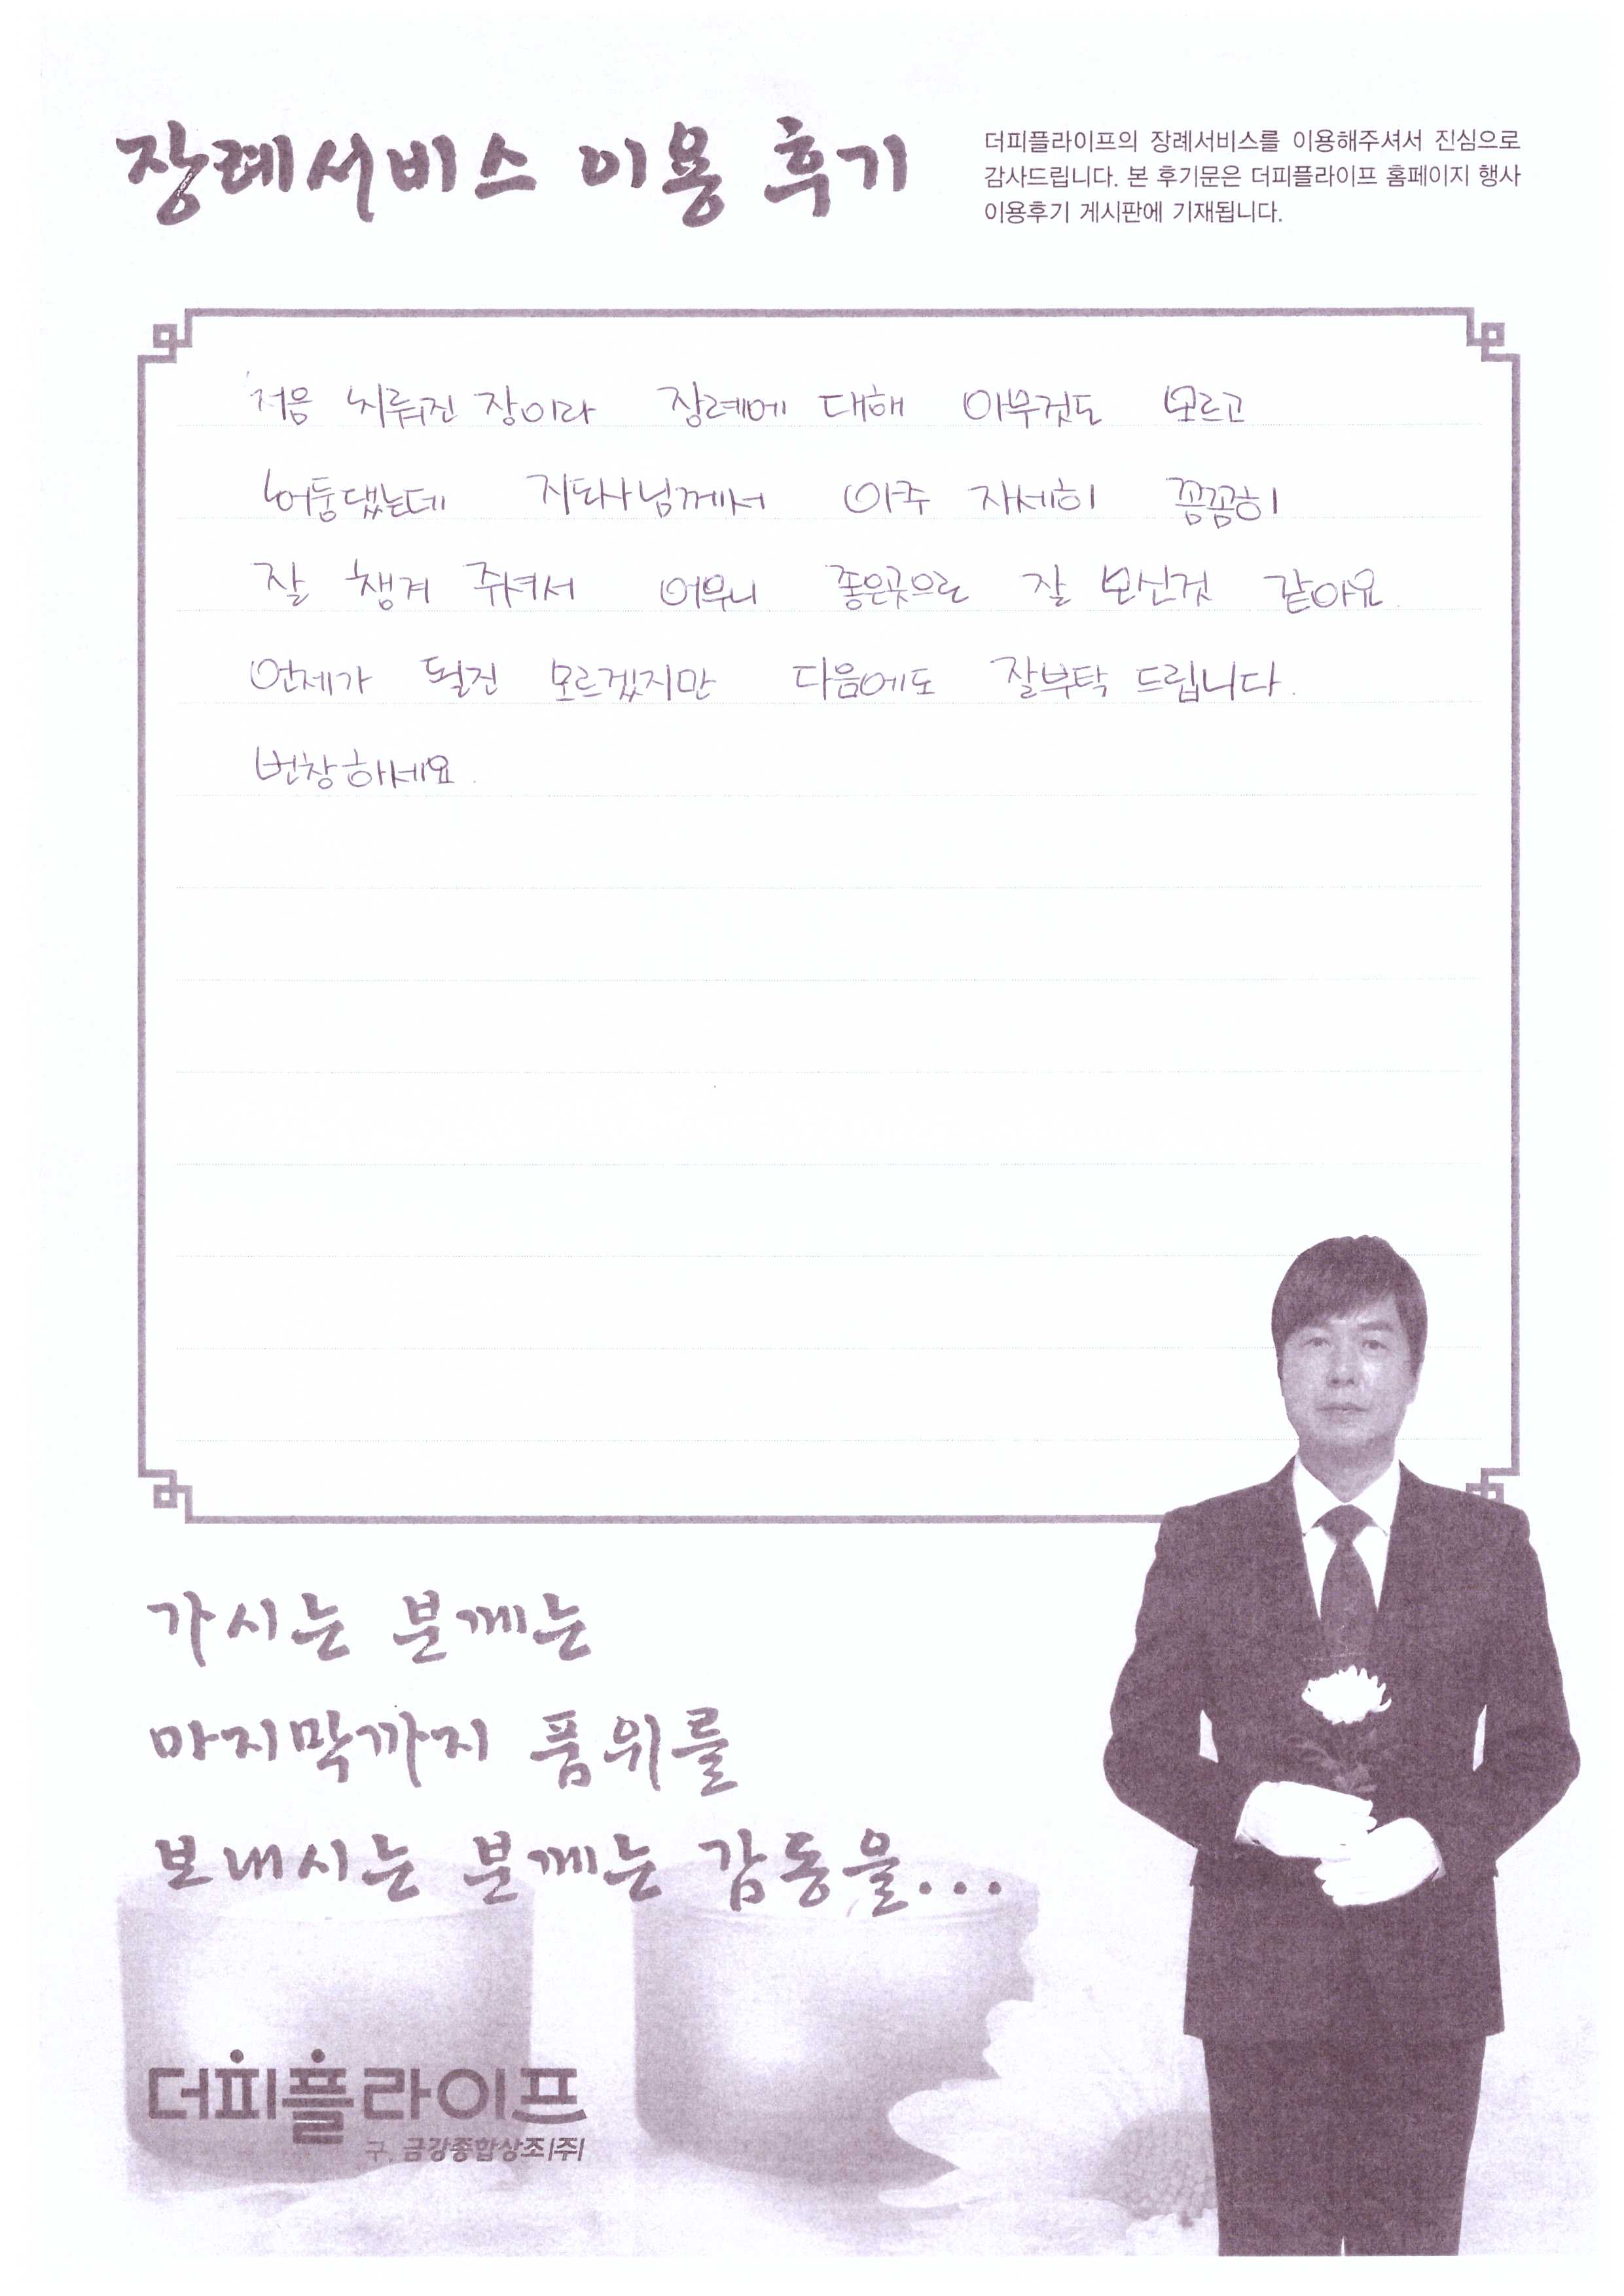 장례서비스 이용 후기
더피플라이프의 장례서비스를 이용해주셔서 진심으로
감사드립니다. 본 후기문은 더피플라이프 홈페이지 행사
이용후기 게시판에 기재됩니다.
처음 치뤄진 장이라 장례에 대해 아무것도 모르고
허둥댔는데 지도사님께서 아주 자세히 꼼꼼히
잘 챙겨 주셔서 어무니 좋은곳으로 잘 모신것 같아요
언제가 될진 모르겠지만 다음에도 잘부탁 드립니다.
번창하세요.
가시는 분께는
마지막까지 품위를
보내시는 분께는 감동을...
더피플라이프
구. 금강종합상조(주)